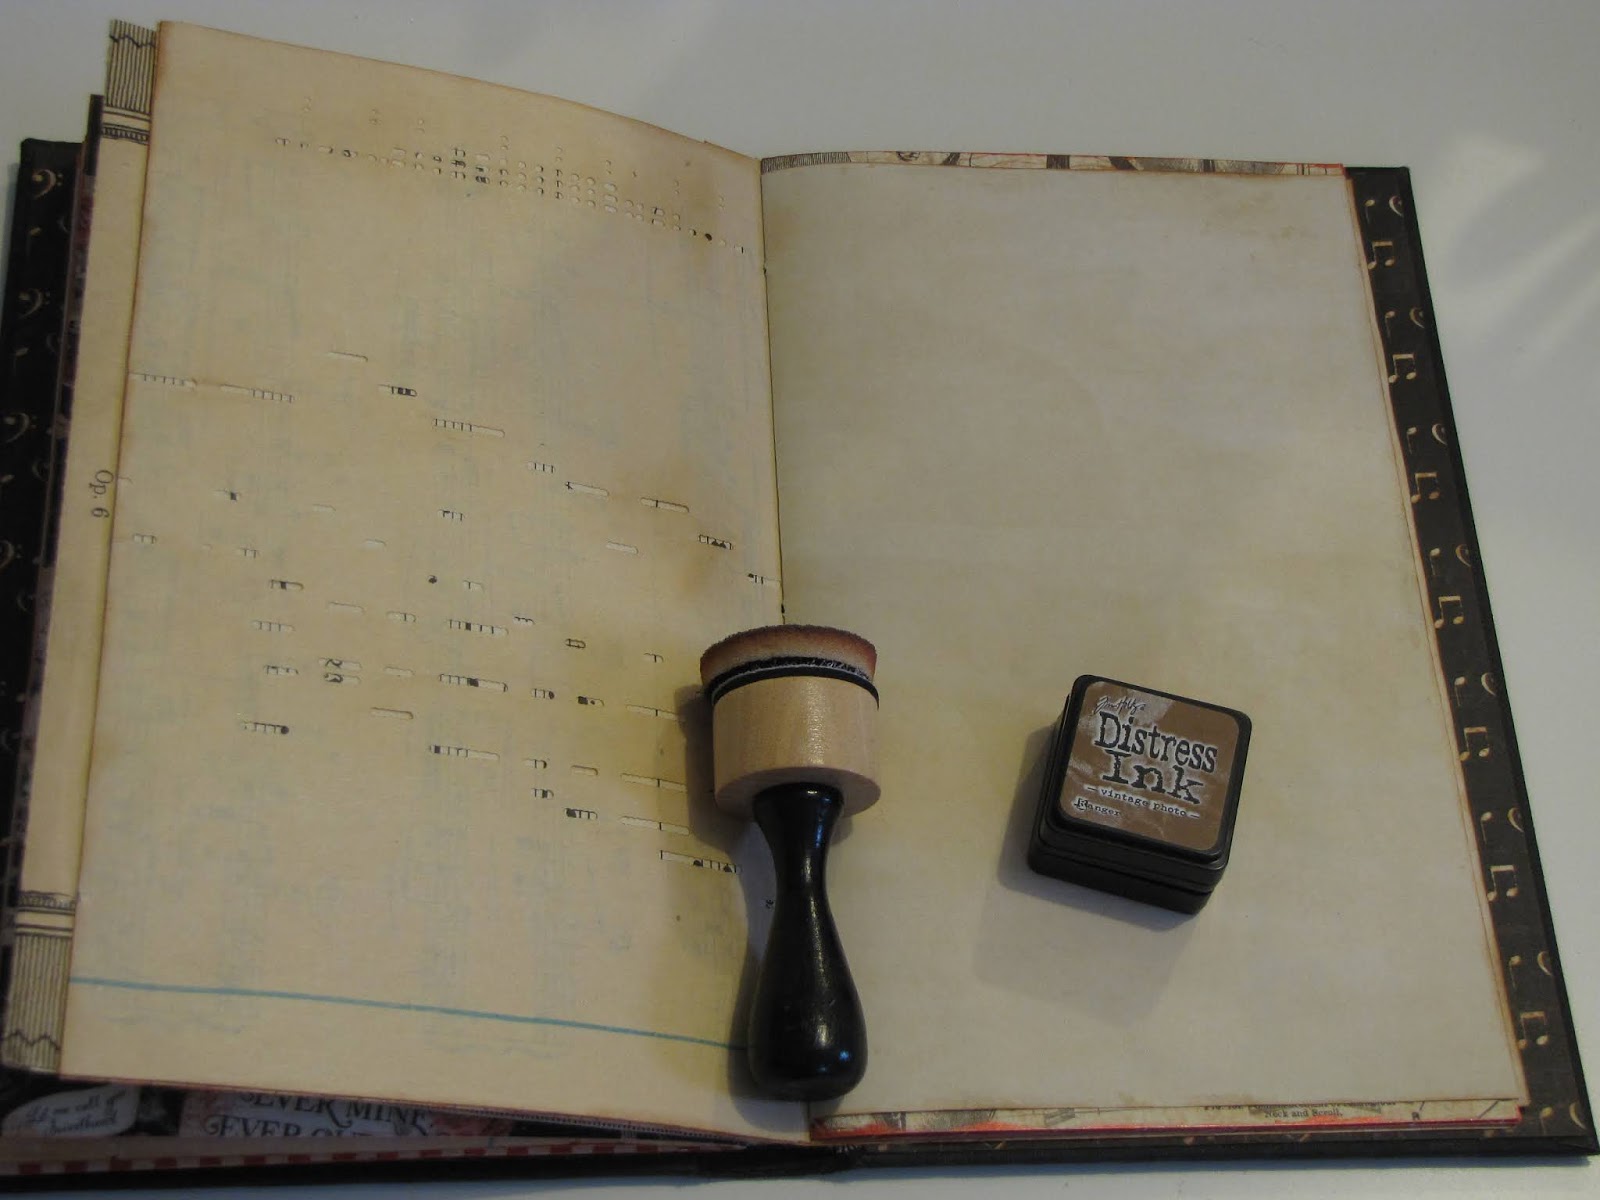 Op. 6
Tim Holtz
Distress
Ink
– vintage photo –
Ranger
EVER MINE,
Neck and Scroll.